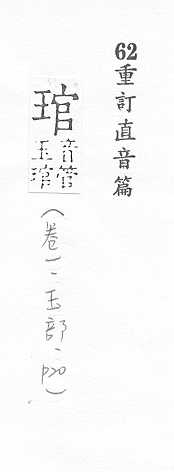 62重訂直音篇
琯
音管
玉琯
（卷一、玉部、p20）